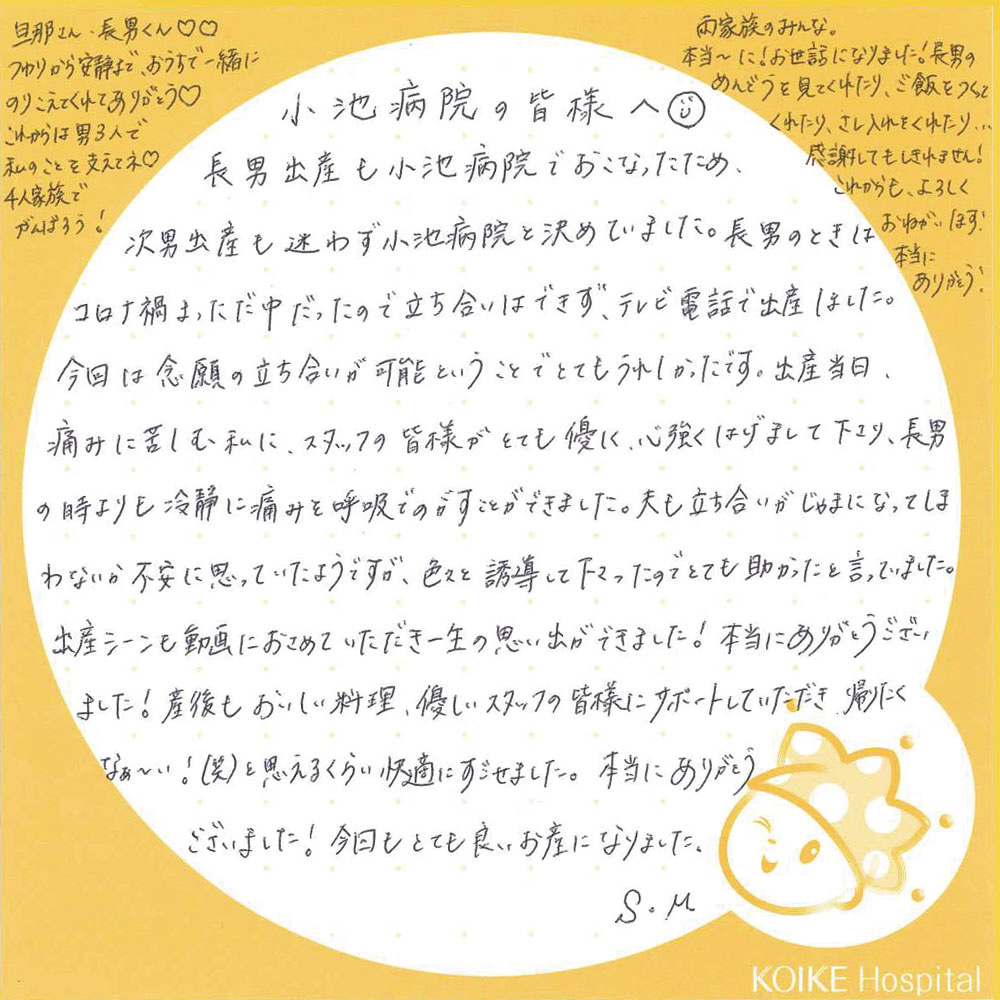 旦那さん・長男くん♡♡
つわりから安静まで、おうちで一緒に
のりこえてくれてありがとう♡
これからは男3人で
私のことを支えてネ♡
4人家族で
がんばろう!
両家族のみんな。
本当〜に!お世話になりました!長男の
めんどうを見てくれたり、ご飯をつくて
くれたり、さし入れをくれたり...
感謝してもしきれません!
これからも、よろしく
おねがいします!
本当に
ありがとう!
小池病院の皆様へ☺
長男出産も小池病院でおこなったため、
次男出産も迷わず小池病院と決めていました。長男のときは
コロナ禍まっただ中だったので立ち合いはできず、テレビ電話で出産しました。
今回は念願の立ち合いが可能ということでとてもうれしかったです。出産当日、
痛みに苦しむ私に、スタッフの皆様がとても優しく、心強くはげまして下さり、長男
の時よりも冷静に痛みを呼吸でのがすことができました。夫も立ち合いがじゃまになってしま
わないか不安に思っていたようですが、色々と誘導して下さったのでとても助かったと言っていました。
出産シーンも動画におさめていただき一生の思い出ができました!本当にありがとうござい
ました!産後もおいしい料理、優しいスタッフの皆様にサポートしていただき帰りたく
なぁ〜い!(笑)と思えるくらい快適にすごせました。本当にありがとう
ございました!今回もとても良いお産になりました。
S.M
KOIKE Hospital